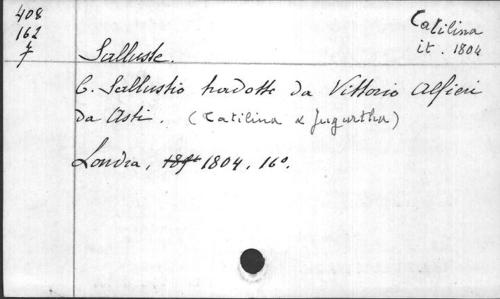 408
162
7
Catilina
it. 1804
Salluste.
C. Sallustio tradotto da Vittorio Alfieri
da Asti. (Catilina & Jugurtha)
Londra, 1804, 16°.